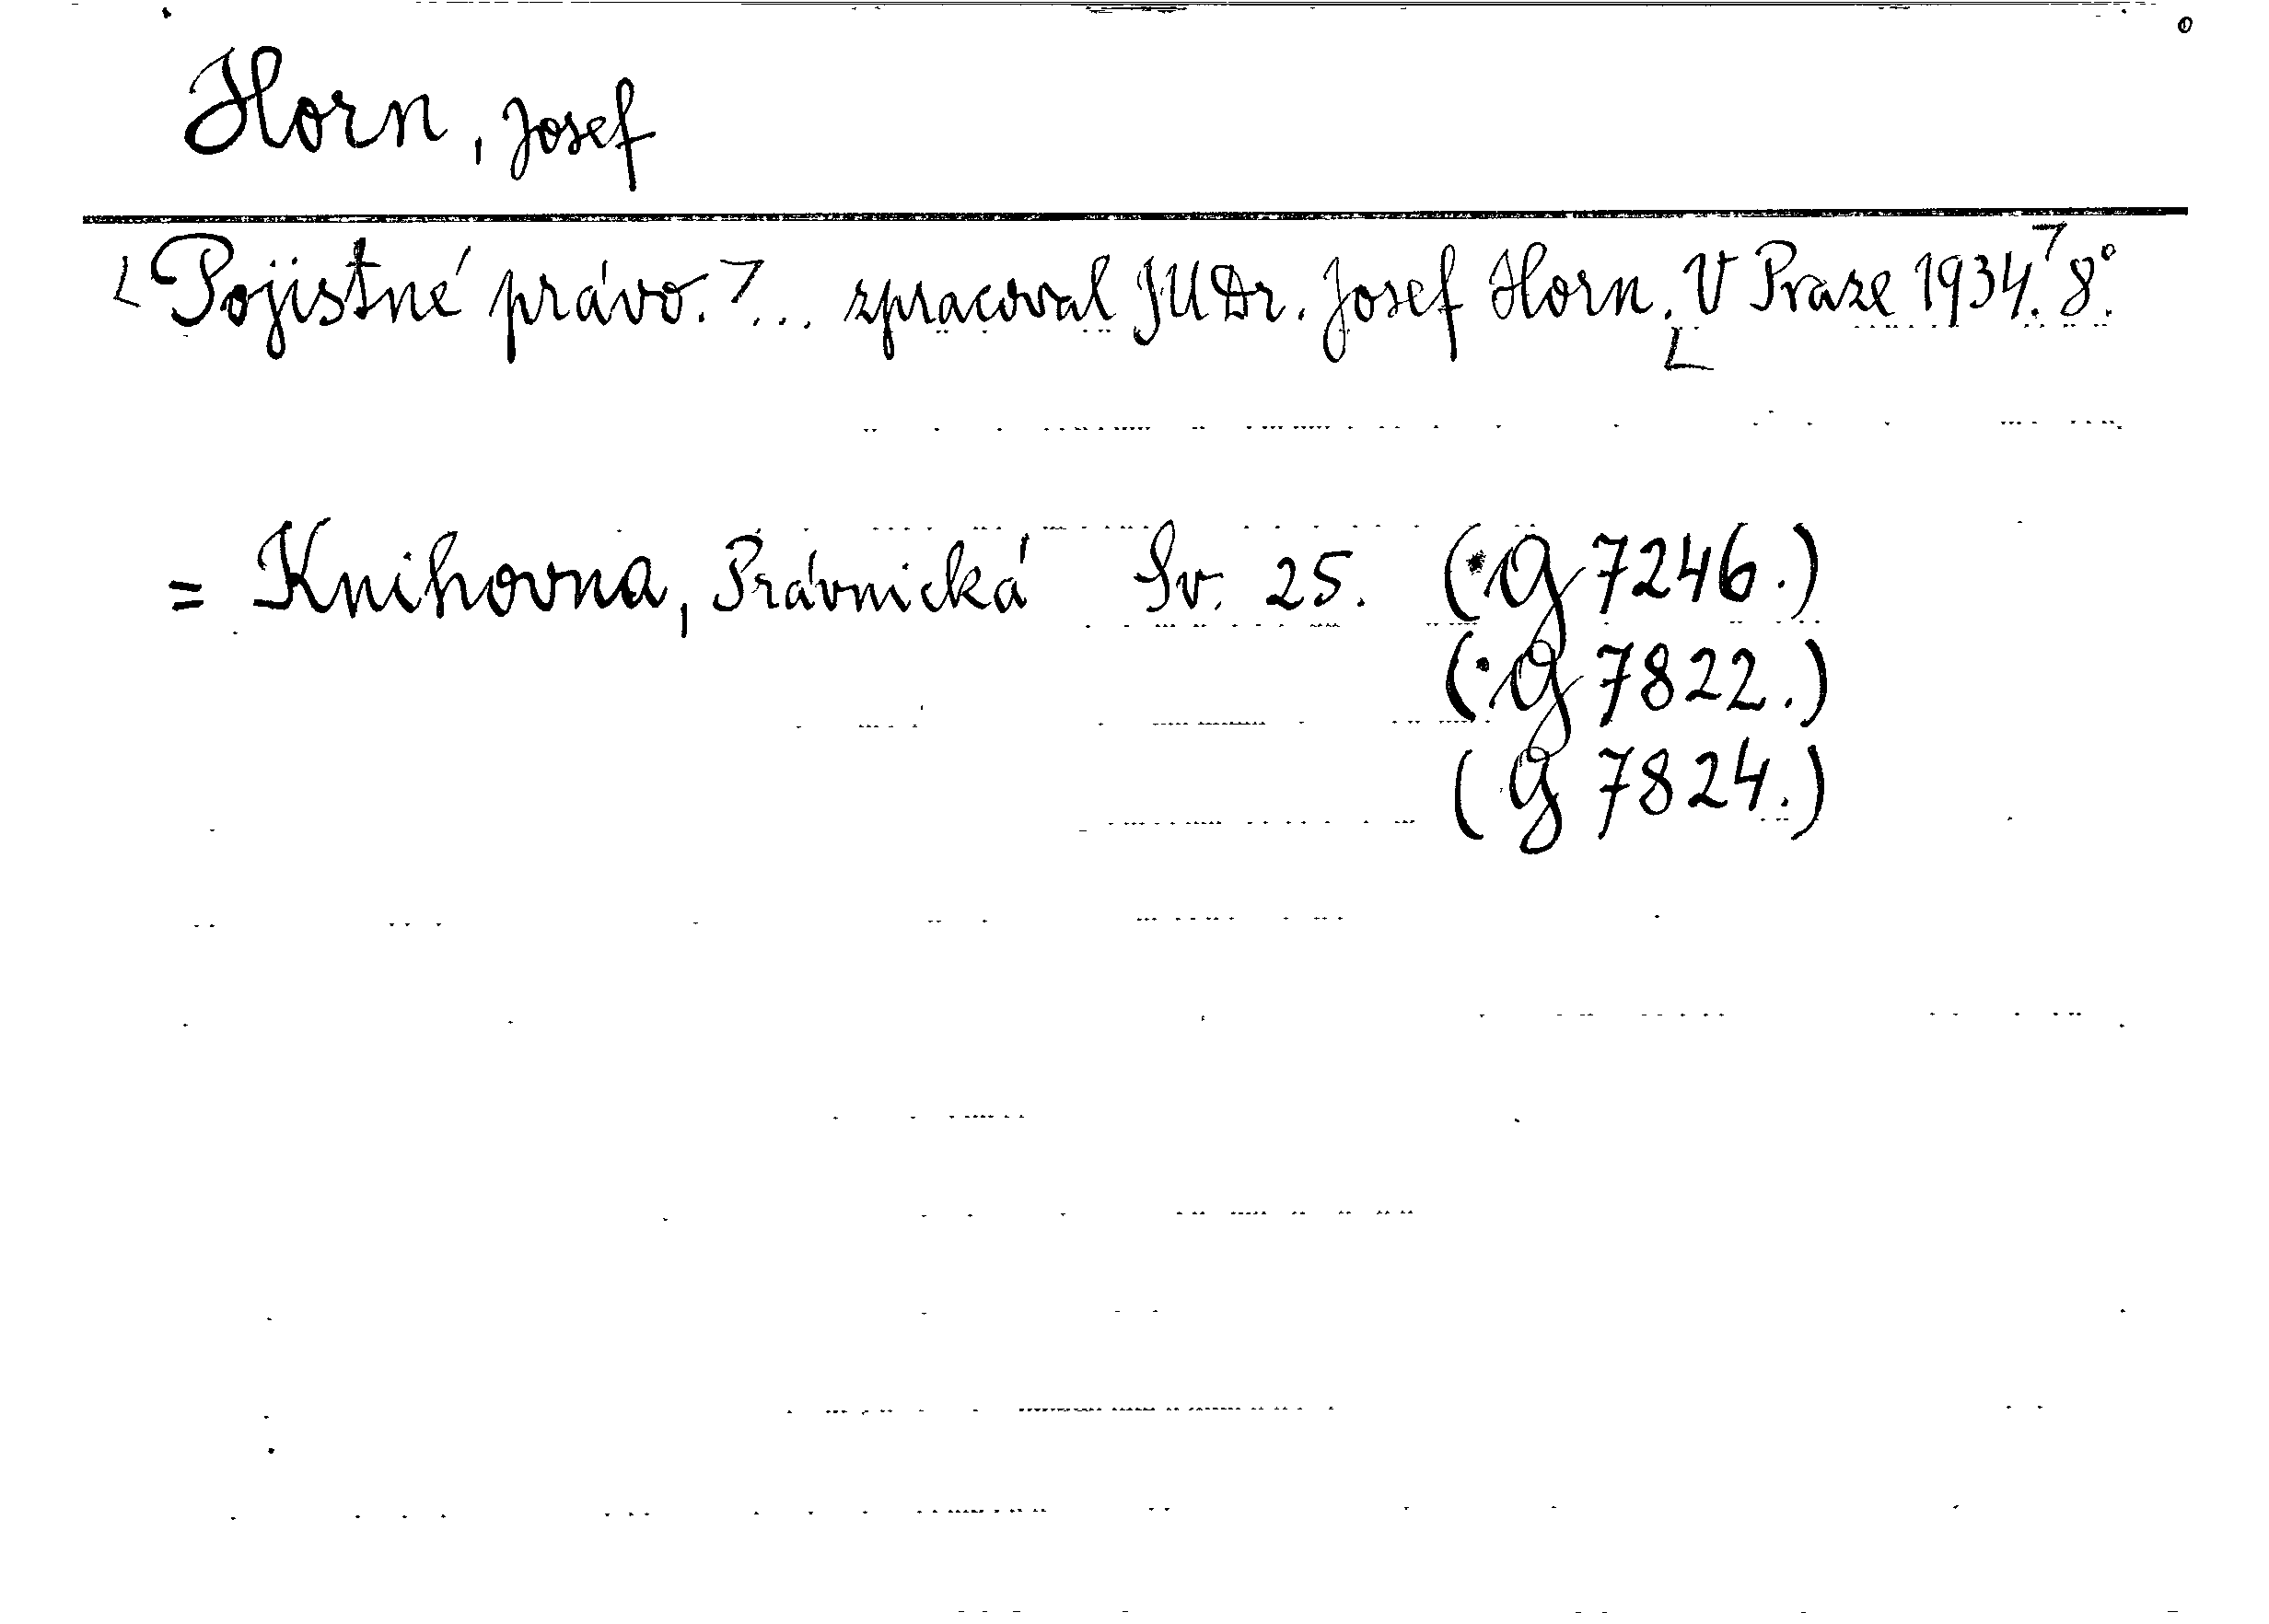 Horn, Josef
⌊Pojistné právo.⌉... zpracoval JUDr. Josef Horn. ⌊V Praze 1934.⌉ 8°.
= Knihovna, Právnická Sv. 25. (•G 7246.)
(•G 7822.)
(G 7824.)